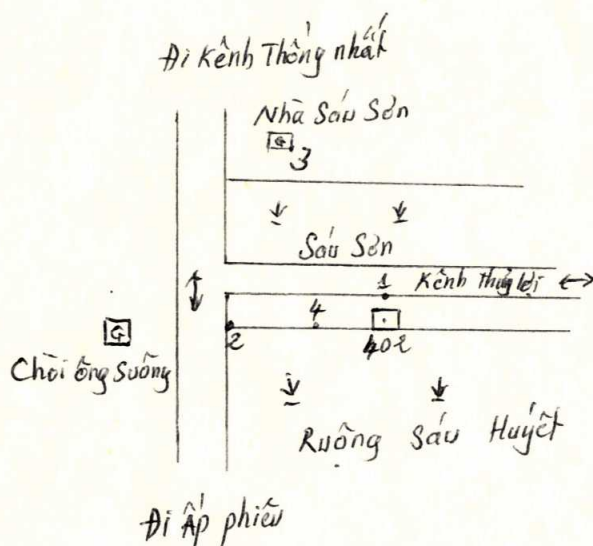 Đi Kênh Thống nhất
Nhà Sáu Sơn
G
3
Sáu Sơn
1
Kênh Thủy lợi
4
2
402
G
Chòi ông Suông
Ruộng Sáu Huyết
Đi Ấp phiếu